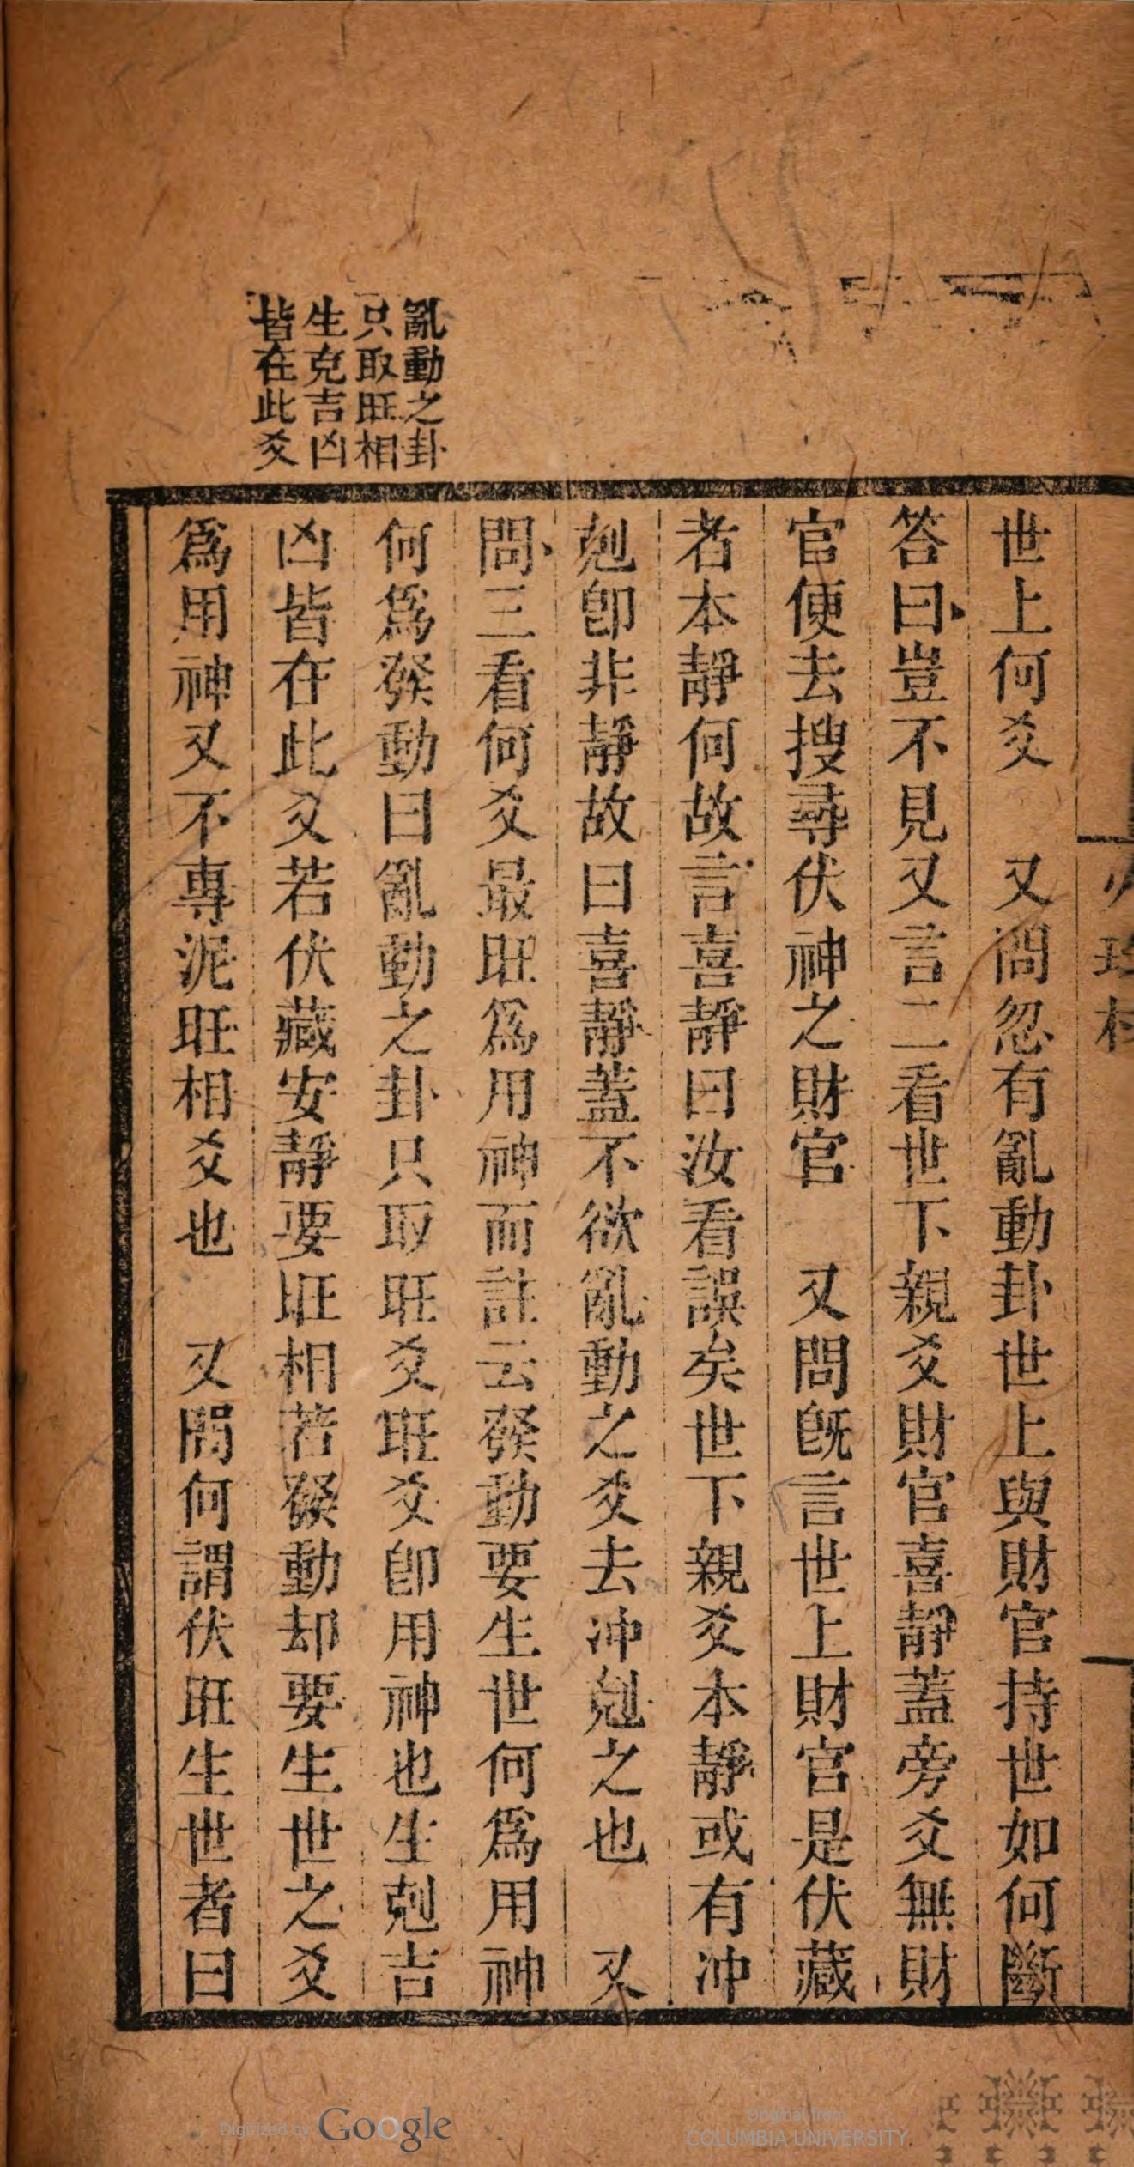 亂動之卦
只取旺相
生克吉凶
皆在此爻
世上何爻　又問忽有亂動卦世上與財官持世如何斷
答曰豈不見又言二看世下親爻財官喜靜蓋旁爻無財
官便去搜尋伏神之財官　又問既言世上財官是伏藏
者本靜何故言喜靜曰汝看誤矣世下親爻本靜或有冲
剋卽非靜故曰喜靜蓋不欲亂動之爻去冲剋之也　又
問三看何爻最旺爲用神而註云發動要生世何爲用神
何爲發動曰亂動之卦只取旺爻旺爻卽用神也生剋吉
凶皆在此爻若伏藏安靜要旺相若發動却要生世之爻
爲用神又不專泥旺相爻也　又問何謂伏旺生世者曰
Digitized by Google
Original from
COLUMBIA UNIVERSITY